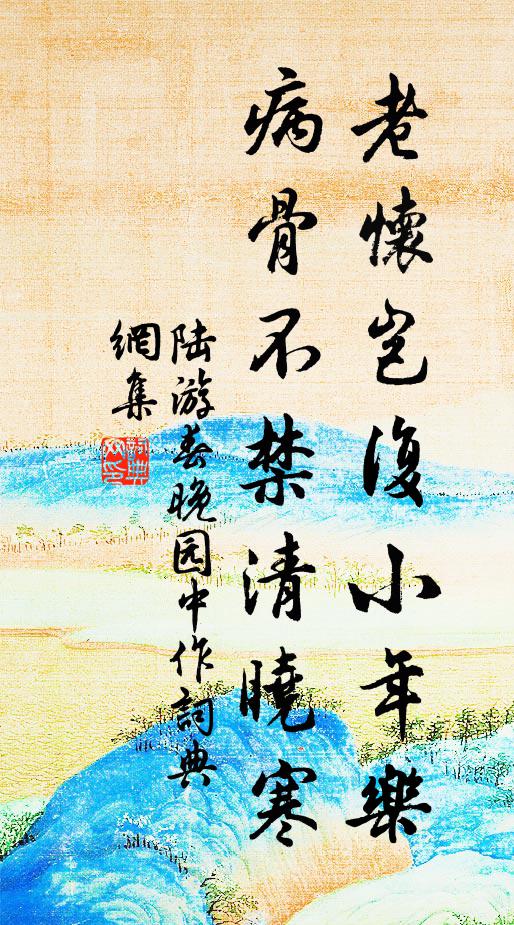 老懷豈復小年樂
病骨不禁清曉寒
陆游春晚园中作詞典
網集